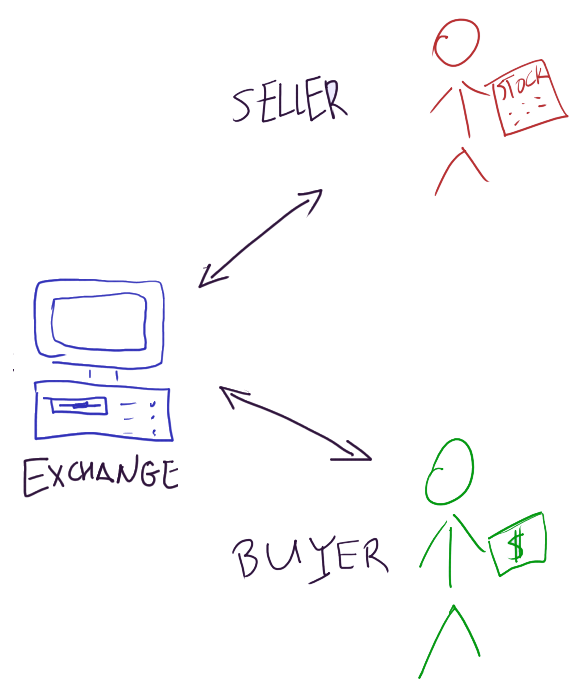 SELLER
STOCK
EXCHANGE
BUYER
$